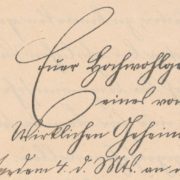 Euer Hochwohlge
eines vo
Wirklichen Geheim
dem 4. d. Mts. an